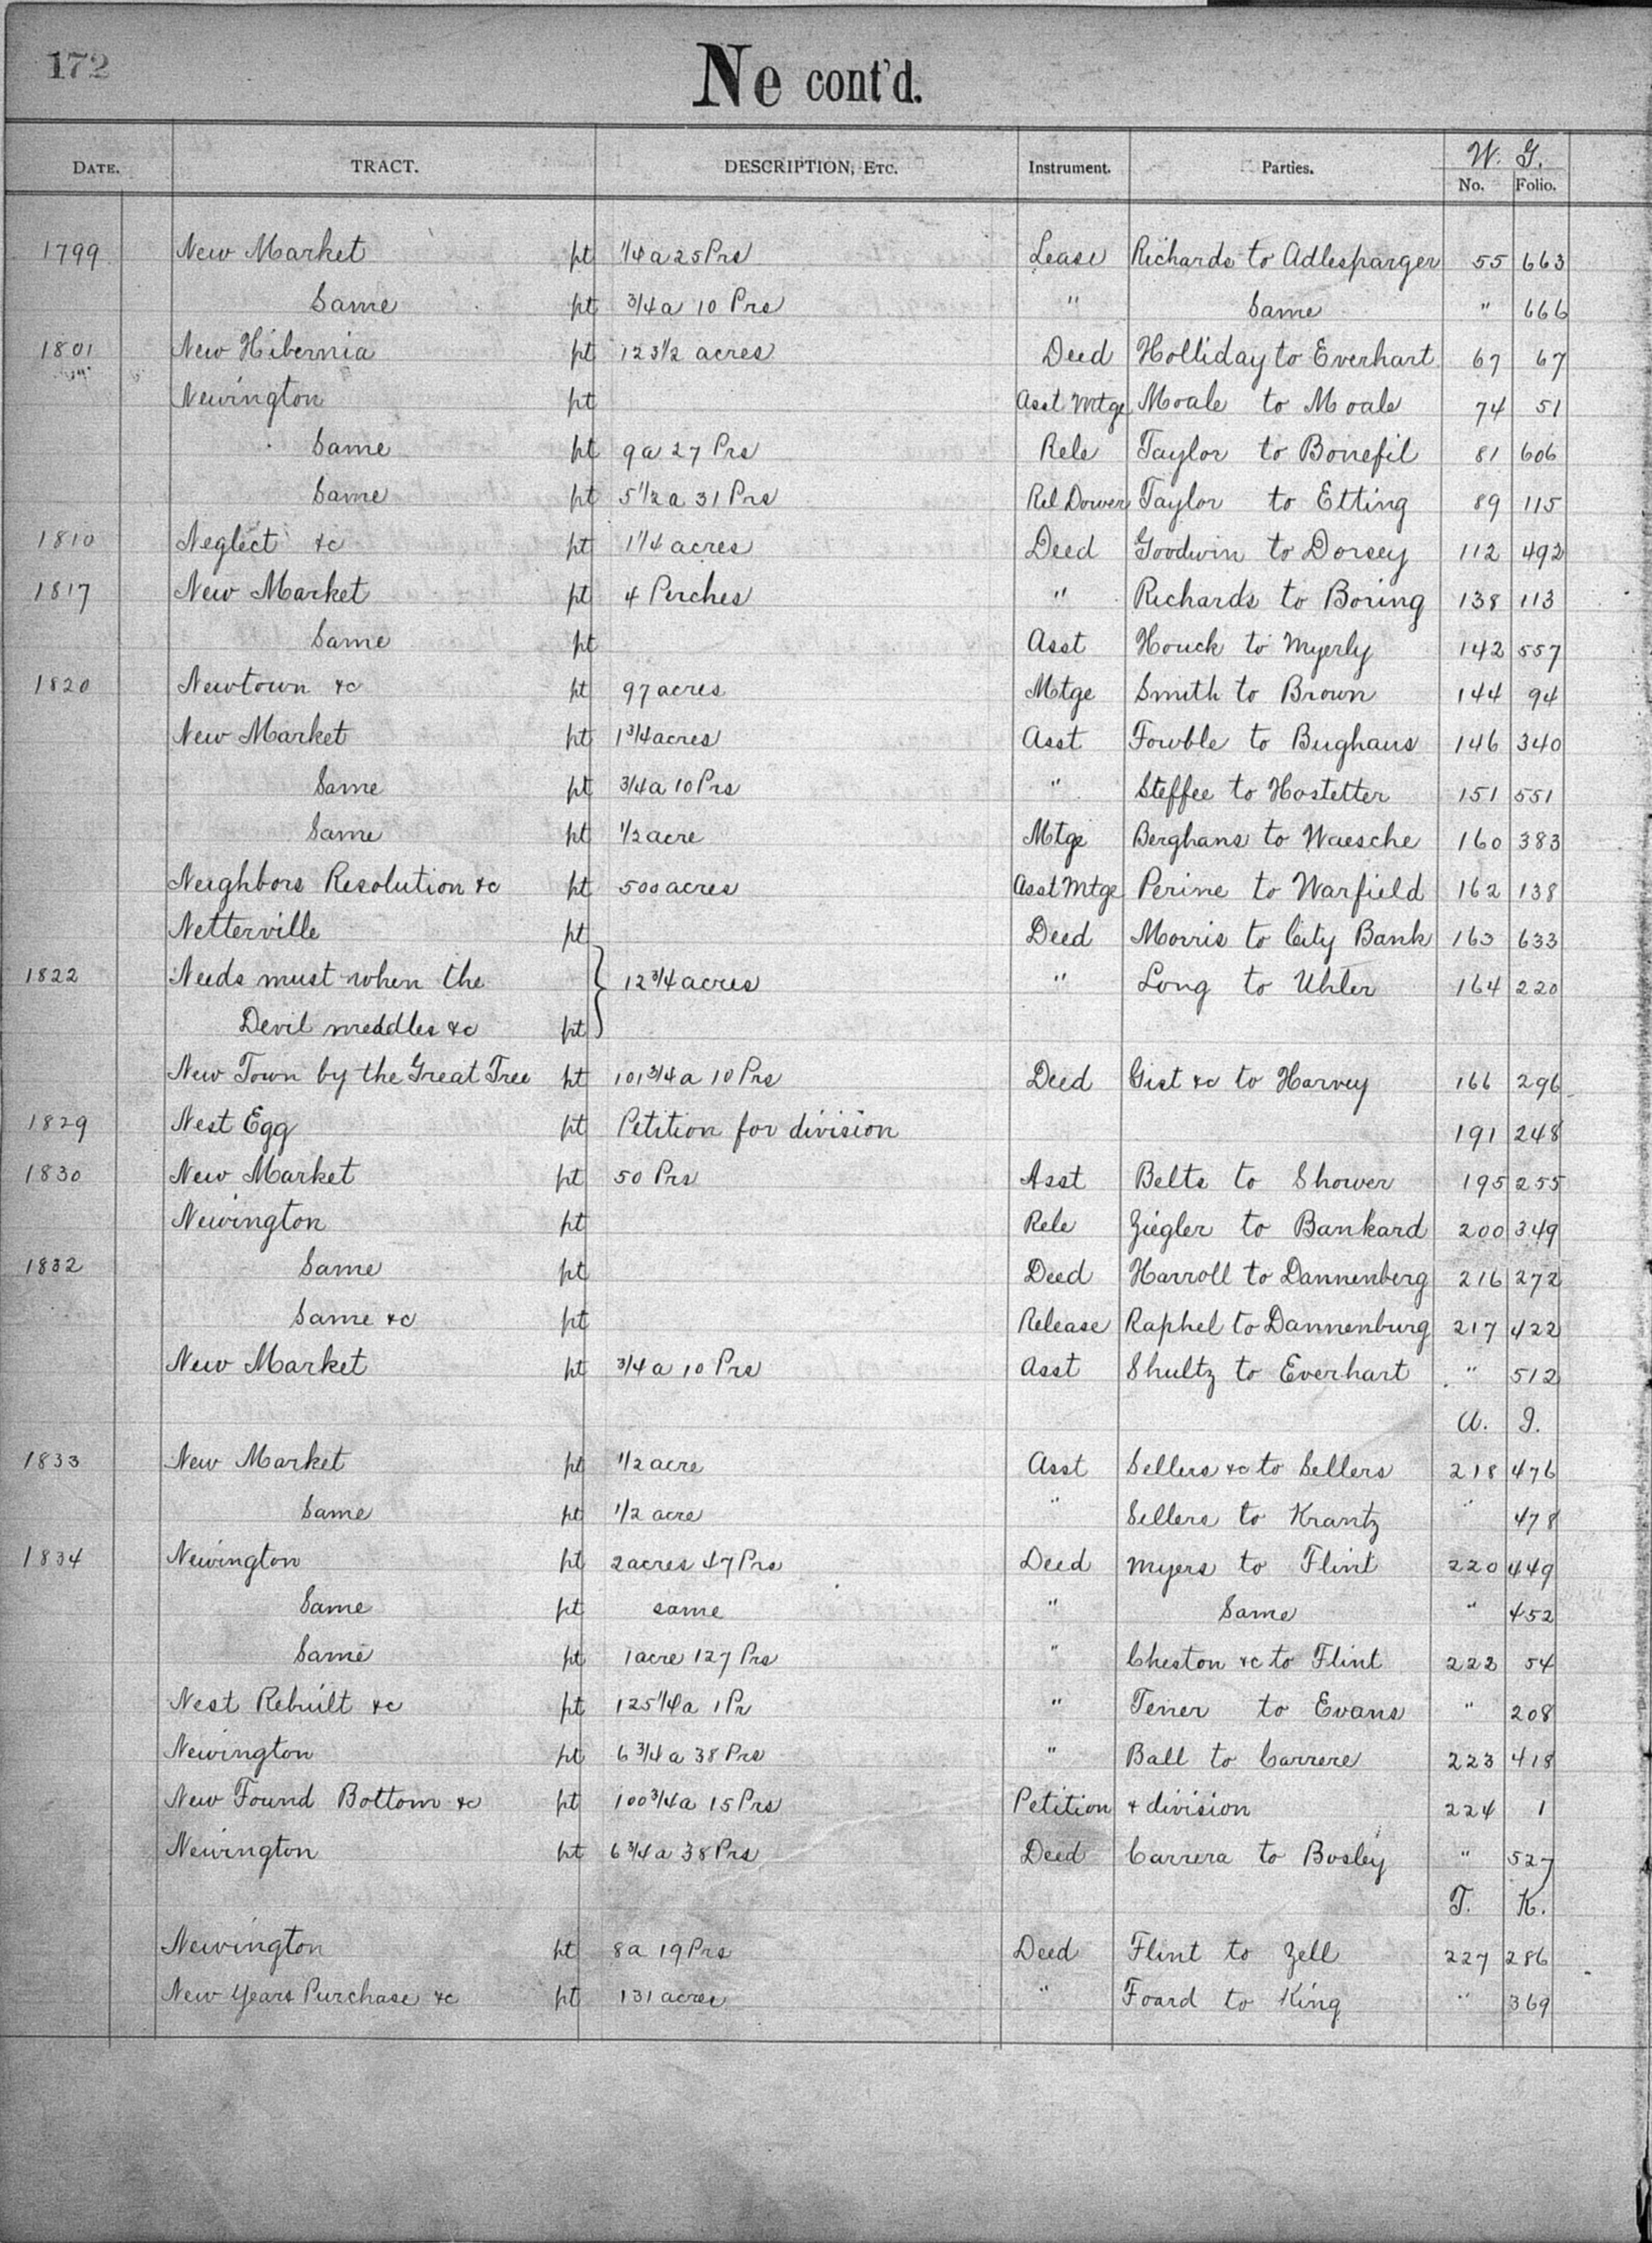 172
Ne cont'd.
DATE. TRACT. DESCRIPTION, ETC. Instrument. Parties. W. G. No. Folio.
1799 New Market pt 1/4 a 25 Prs Lease Richards to Adlesparger 55 663
Same pt 3/4 a 10 Prs " Same " 666
1801 New Hibernia pt 123 1/2 acres Deed Holliday to Everhart 67 67
Newington pt Asst Mtge Moale to Moale 74 51
Same pt 9 a 27 Prs Rele Taylor to Bonefil 81 606
Same pt 5 1/2 a 31 Prs Rel Dower Taylor to Etting 89 115
1810 Neglect &c pt 1 1/4 acres Deed Goodwin to Dorsey 112 492
1817 New Market pt 4 Perches " Richards to Boring 138 113
Same pt Asst Houck to Myerly 142 557
1820 Newtown &c pt 97 acres Mtge Smith to Brown 144 94
New Market pt 1 3/4 acres Asst Fowble to Bughaus 146 340
Same pt 3/4 a 10 Prs " Steffee to Hostetter 151 551
Same pt 1/2 acre Mtge Berghans to Waesche 160 383
Neighbors Resolution &c pt 500 acres Asst Mtge Perine to Warfield 162 138
Netterville pt Deed Morris to City Bank 163 633
1822 Needs must when the } 12 3/4 acres " Long to Uhler 164 220
Devil meddles &c pt
New Town by the Great Tree pt 101 3/4 a 10 Prs Deed Gist &c to Harvey 166 296
1829 Nest Egg pt Petition for division 191 248
1830 New Market pt 50 Prs Asst Belts to Shower 195 255
Newington pt Rele Ziegler to Bankard 200 349
1832 Same pt Deed Harroll to Dannenberg 216 272
Same &c pt Release Raphel to Dannenburg 217 422
New Market pt 3/4 a 10 Prs Asst Shultz to Everhart " 512
A. I.
1833 New Market pt 1/2 acre Asst Sellers &c to Sellers 218 476
Same pt 1/2 acre " Sellers to Krantz " 478
1834 Newington pt 2 acres 47 Prs Deed Myers to Flint 220 449
Same pt same " Same " 452
Same pt 1 acre 127 Prs " Cheston &c to Flint 222 54
Nest Rebuilt &c pt 125 1/4 a 1 Pr " Tener to Evans " 208
Newington pt 6 3/4 a 38 Prs " Ball to Carrere 223 418
New Found Bottom &c pt 100 3/4 a 15 Prs Petition & division 224 1
Newington pt 6 3/4 a 38 Prs Deed Carrera to Bosley " 527
T. K.
Newington pt 8 a 19 Prs Deed Flint to Zell 227 286
New Years Purchase &c pt 131 acres " Foard to King " 369